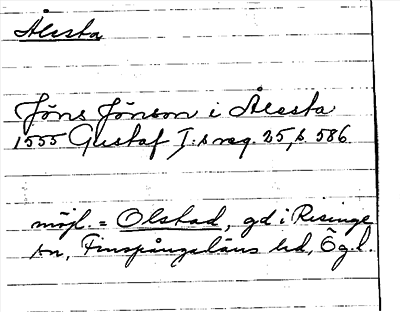 Ålesta
Jöns Jönson i Ålesta
1555 Gustaf I:s reg. 25, s. 586.
möjl. = Olstad, gd i Risinge
sn, Finspångaläns hd, Ög.l.